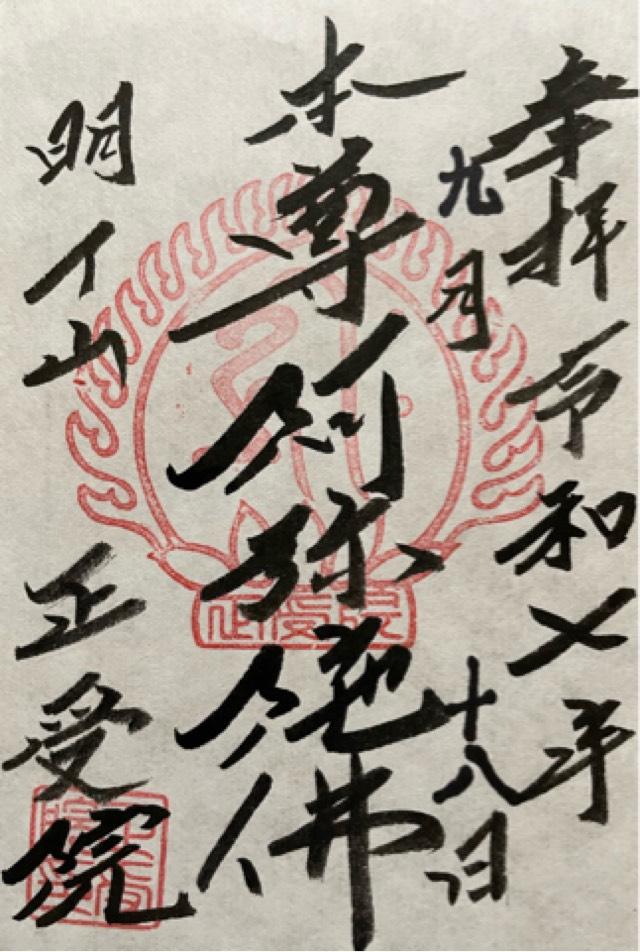 奉拝 令和七年
九月 十八日
本尊阿弥陀佛
明了山 正受院
正受院